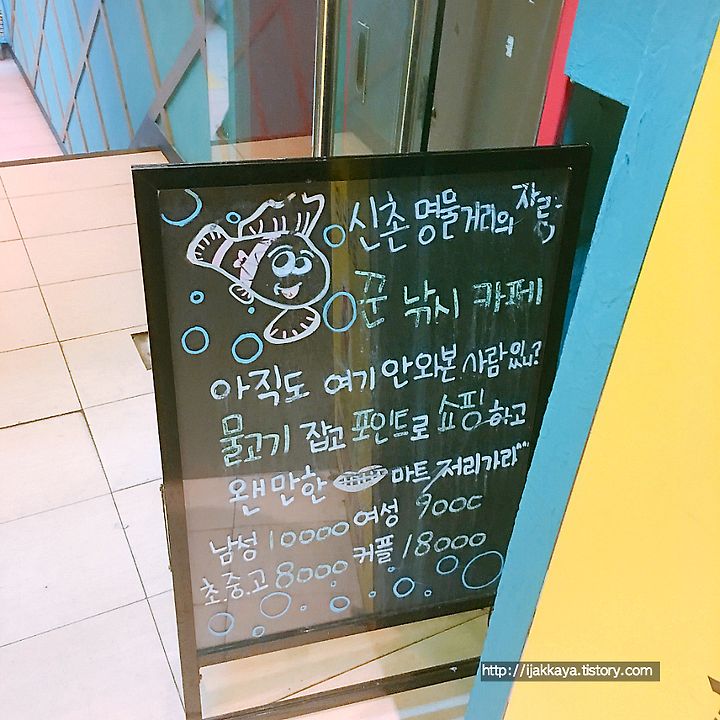 신촌 명물거리의 자랑
꾼 낚시 카페
아직도 여기 안와본 사람 있니?
물고기 잡고 포인트로 쇼핑하고
왠만한 마트 저리가라~
남성 10000 여성 9000
초.중.고 8000 커플 18000
http://ijakkaya.tistory.com